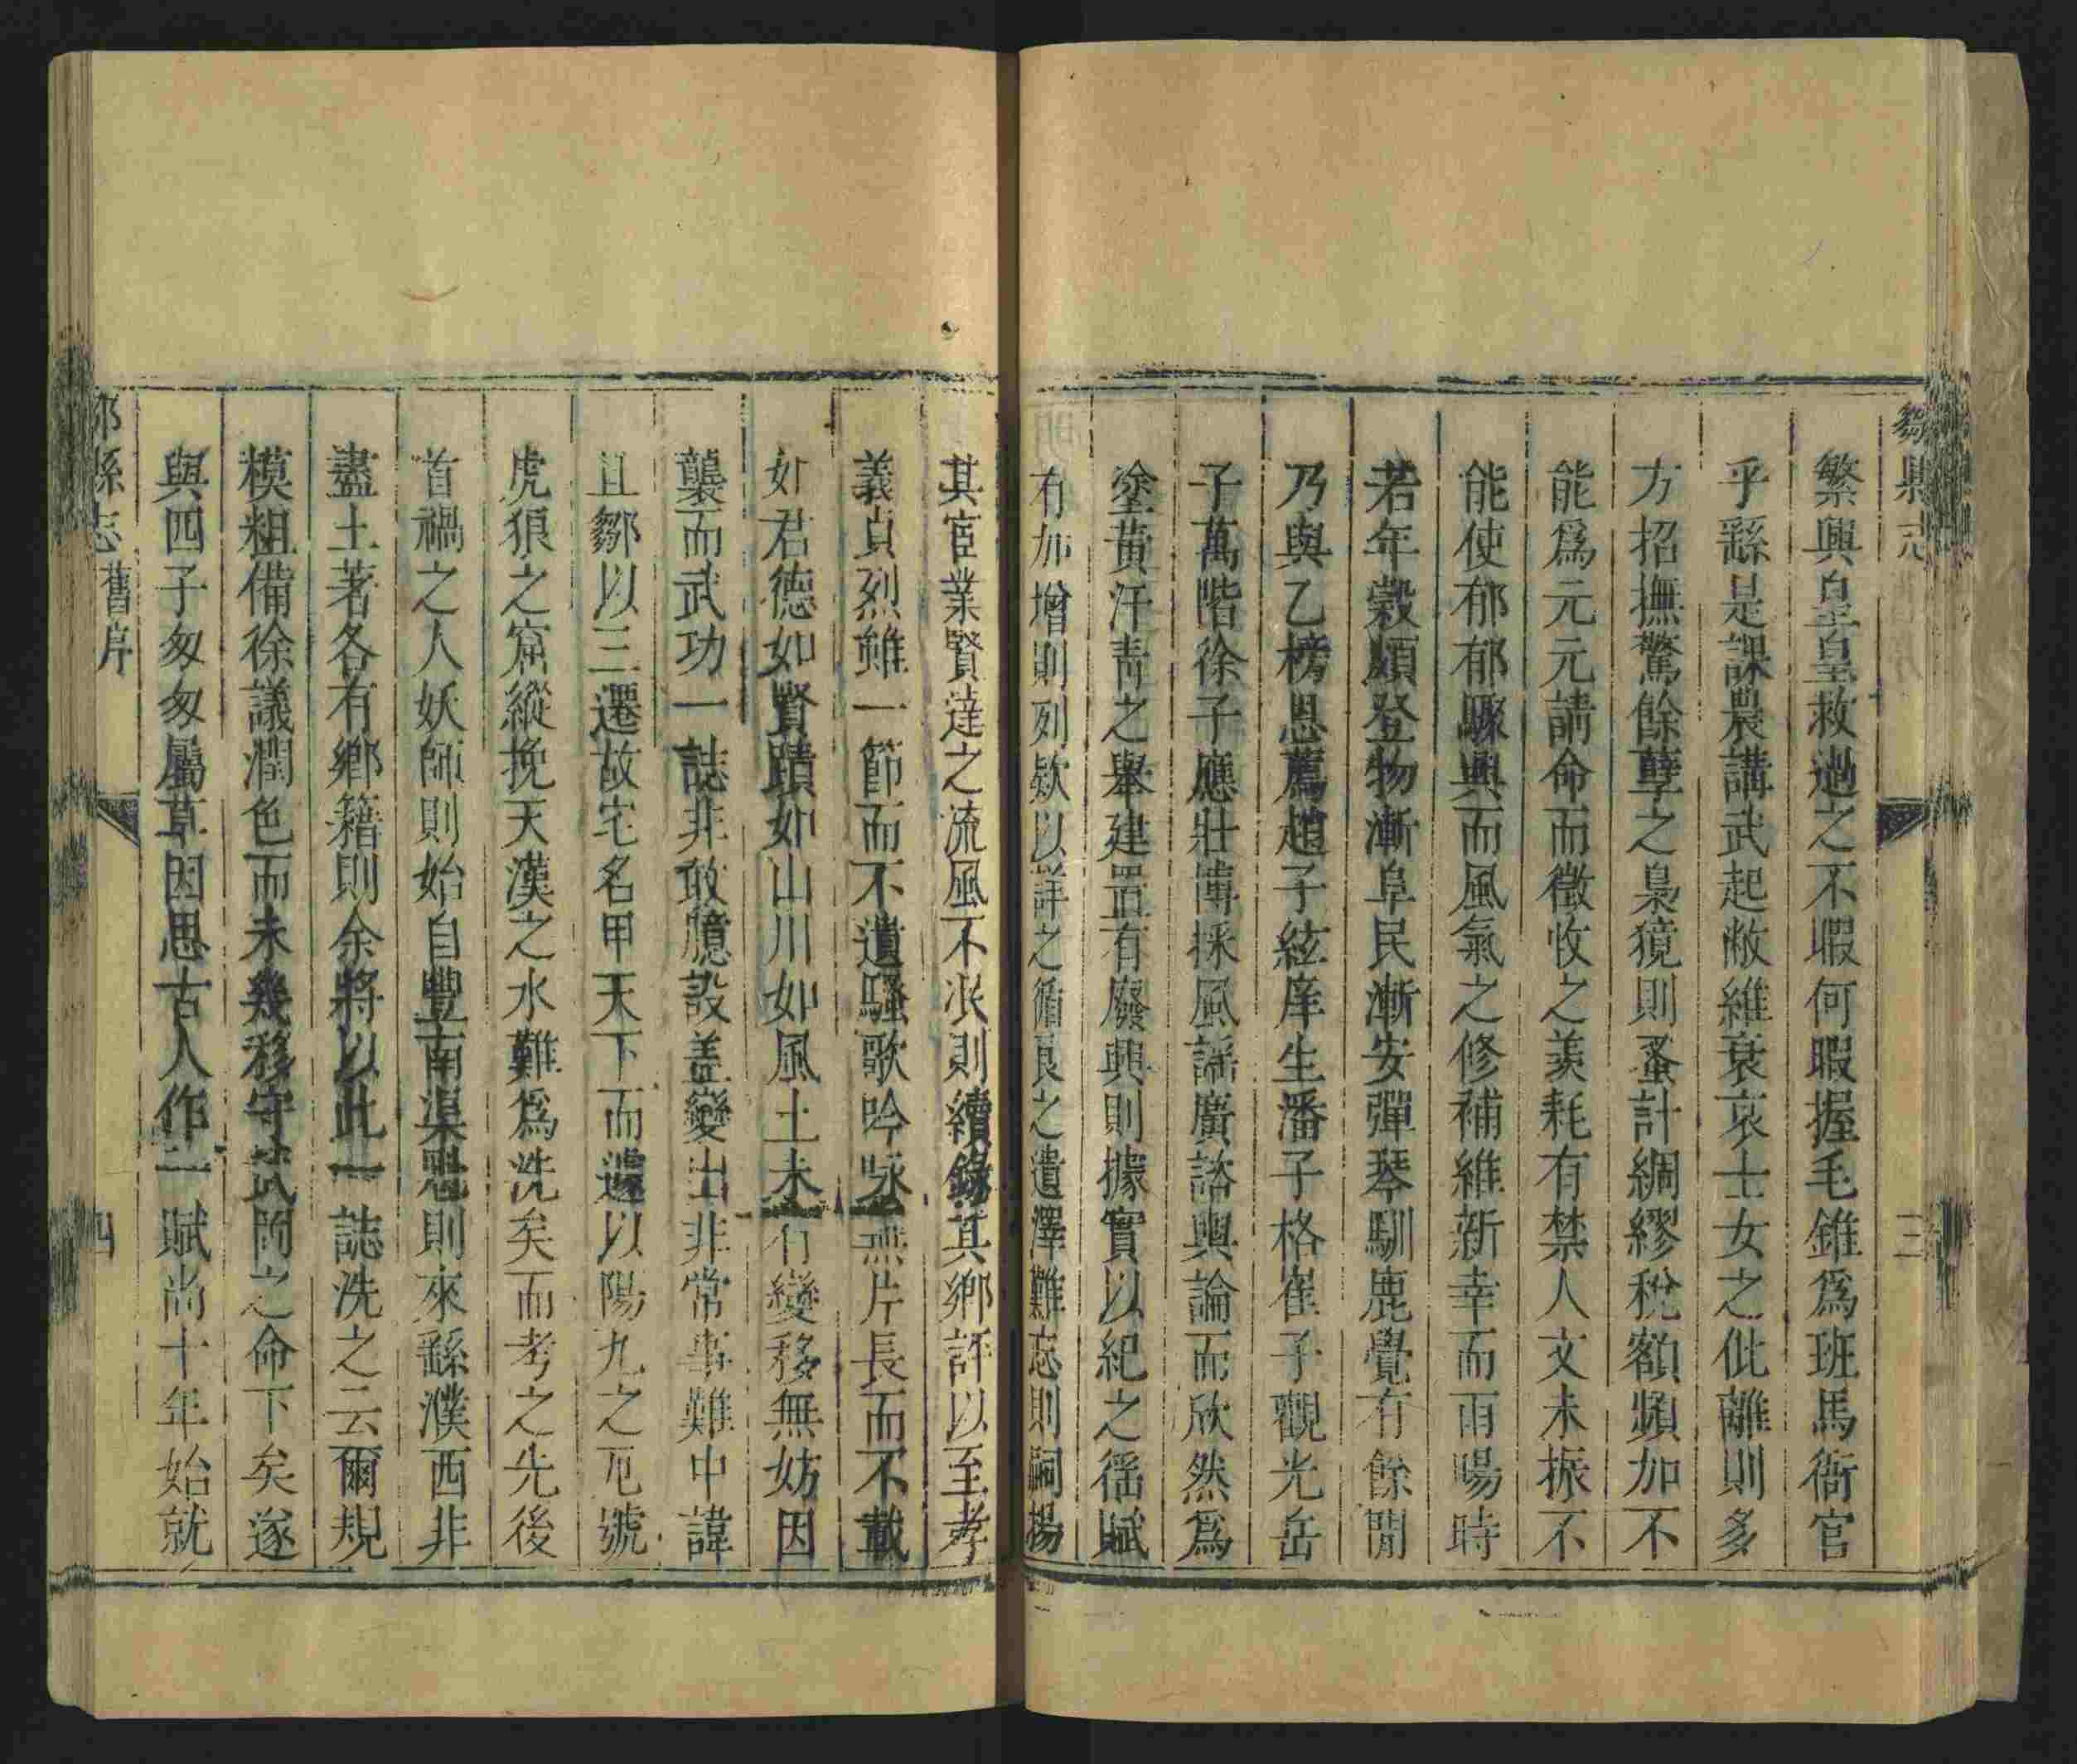 繁興皇皇救過之不暇何暇握毛錐爲班馬衙官
乎繇是課農講武起敝維衰哀士女之仳離則多
方招撫驚餘孽之梟獍則蚤計綢繆稅額頻加不
能爲元元請命而徵收之羨耗有禁人文未振不
能使郁郁驟興而風氣之修補維新幸而雨暘時
若年穀頗登物漸阜民漸安彈琴馴鹿覺有餘閒
乃與乙榜恩薦趙子絃庠生潘子格崔子觀光岳
子萬階徐子應壯博採風謠廣諮輿論而欣然爲
塗黃汗青之舉建置有廢興則據實以紀之徭賦
有加增則列欵以詳之循良之遺澤難忘則嗣揚
其宦業賢達之流風不泯則續錄其鄉評以至孝
義貞烈雖一節而不遺騷歌吟咏無片長而不載
如君德如賢蹟如山川如風土未有變移無妨因
襲而武功一誌非敢臆設蓋變出非常事難中諱
且鄒以三遷故宅名甲天下而遽以陽九之厄號
虎狼之窟縱挽天漢之水難爲洗矣而考之先後
首禍之人妖師則始自豐南渠魁則來繇濮西非
盡土著各有鄉籍則余將以此一誌洗之云爾規
模粗備徐議潤色而未幾移守武岡之命下矣遂
與四子匆匆屬草因思古人作一賦尚十年始就
縣志 舊序 四